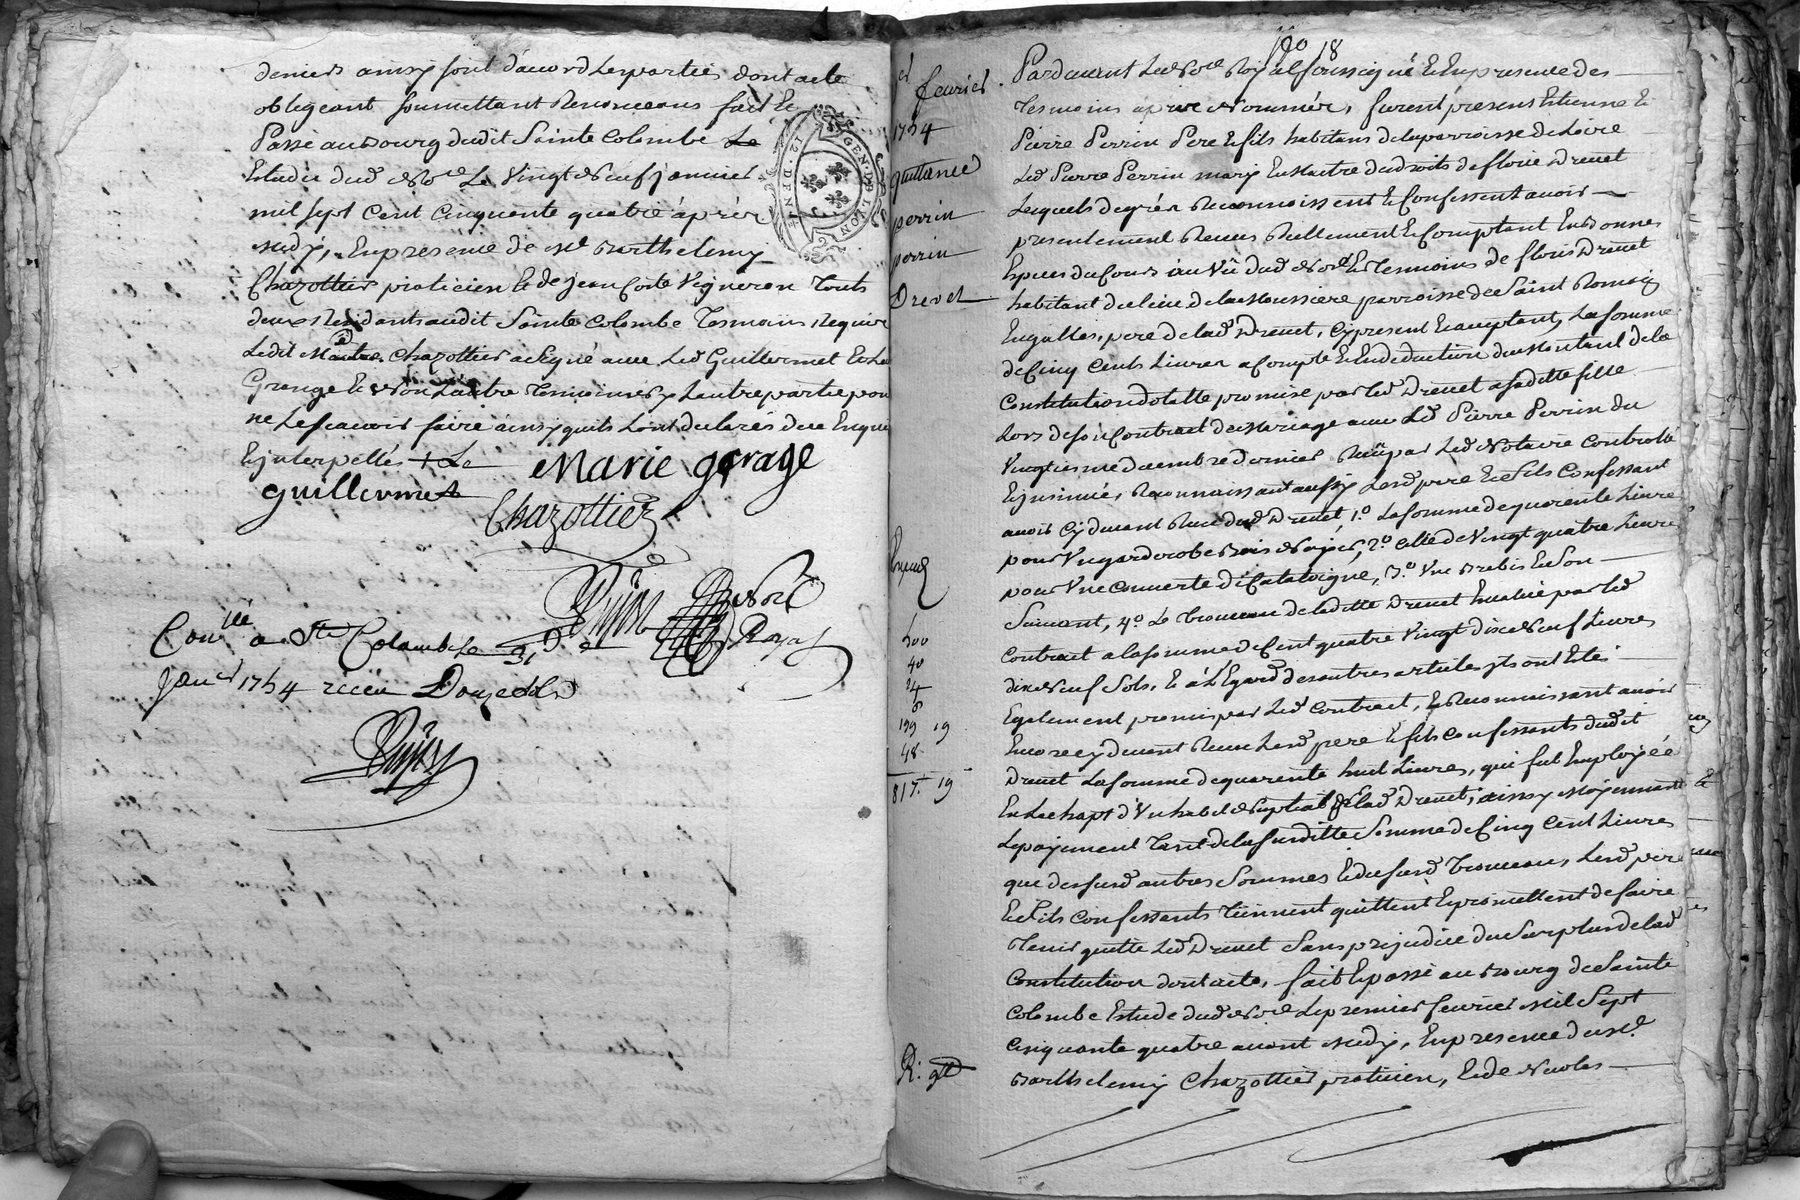 deniers ainsy sont d'accord Les parties dont acte
obligeant soumettant Renonceans fait Et
Passé au Bourg dudit Sainte Colombe Le
Estude dud No.re Le Vingt Neuf janvier
mil sept Cent Cinquante quatre après
midy, En presence de M.e Barthelemy
Chazottier praticien Et de jean Vigneron Touts
deux Residants audit Sainte Colombe Tesmoins Requis
Ledit Chazottier a signé avec Led Guillermet Et La
Grange Et Non L'autre Tesmoins ny L'autre partie pour
ne Le scavoir faire ainsy quils Lont declarés de ce Enquis
Et jnterpellés + Le
Marie grage
guillermet
Chazottier
No.re
Royal
Con.llé a Ste Colombe Le 31.e
Janv.r 1754 receu Douze sols
GEN. DE LYON
12. DEN.
N.o 18
fevrier
1754
quittance
perrin
perrin
Drevet
500
40
24
6
199 19
48
817. 19
R: gd
Pardevant Led No.re Royal soussigné Et En presence des
Tesmoins après Nommés, furent presens Estienne Et
Pierre Perrin Pere Et fils habitans de la parroisse de Loire
Led Pierre Perrin mary Et Maitre des droits de florie Drevet
Lesquels de gré Reconnoissent Et Confessent avoir
presentement Receu Reellement Et Comptant En Bonnes
Especes du Cours au Vû dud No.re Et Tesmoins de floris Drevet
habitant du lieu de la Moussiere parroisse de Saint Romain
En galles, pere de lad Drevet, cy present Et acceptant, La somme
de Cinq Cents Livres a Compte Et En deduction du Montant de la
Constitution dotalle promise par led Drevet a sa ditte fille
Lors de son Contract de Mariage avec Led Pierre Perrin du
Vingtiesme decembre dernier Reçû par Led Notaire Controllé
Et jnsinué, Reconnoissant aussy Lesd pere Et fils Confessant
avoir cy devant Receu dud Drevet, 1.o La somme de quarente Livres
pour Un garderobe Bois Noyer, 2.o celle de Vingt quatre Livres
pour Une Couverte de Catalogne, 3.o Une Brebis Et Son
Suivant, 4.o Le Trousseau de la ditte Drevet Evalué par led
Contract a la somme de Cent quatre Vingt dixe Neuf Livres
dixe Neuf Sols, Et a L'Egard des autres articles jls ont Estés
Egalement promis par Led Contract, Et Reconnoissant avoir
Encore cy devant Receu Lesd pere Et fils Confessants dudit
Drevet La somme de quarente huit Livres, qui fut Employée
En L'achapt d'Un habit Nuptial de lad Drevet, ainsy Moyennant
Le payement Tant de la susditte Somme de Cinq Cent Livres
que des susd autres Sommes Et du susd Trousseau, Lesd pere
Et fils Confessants Tiennent quittent Et promettent de faire
Tenir quitte Led Drevet Sans prejudice du Surplus de lad
Constitution dont acte, fait Et passé au Bourg de Sainte
Colombe Estude dud No.re Le premier fevrier Mil Sept
Cinquante quatre avant Midy, En presence de M.e
Barthelemy Chazottier praticien, Et de Nicolas